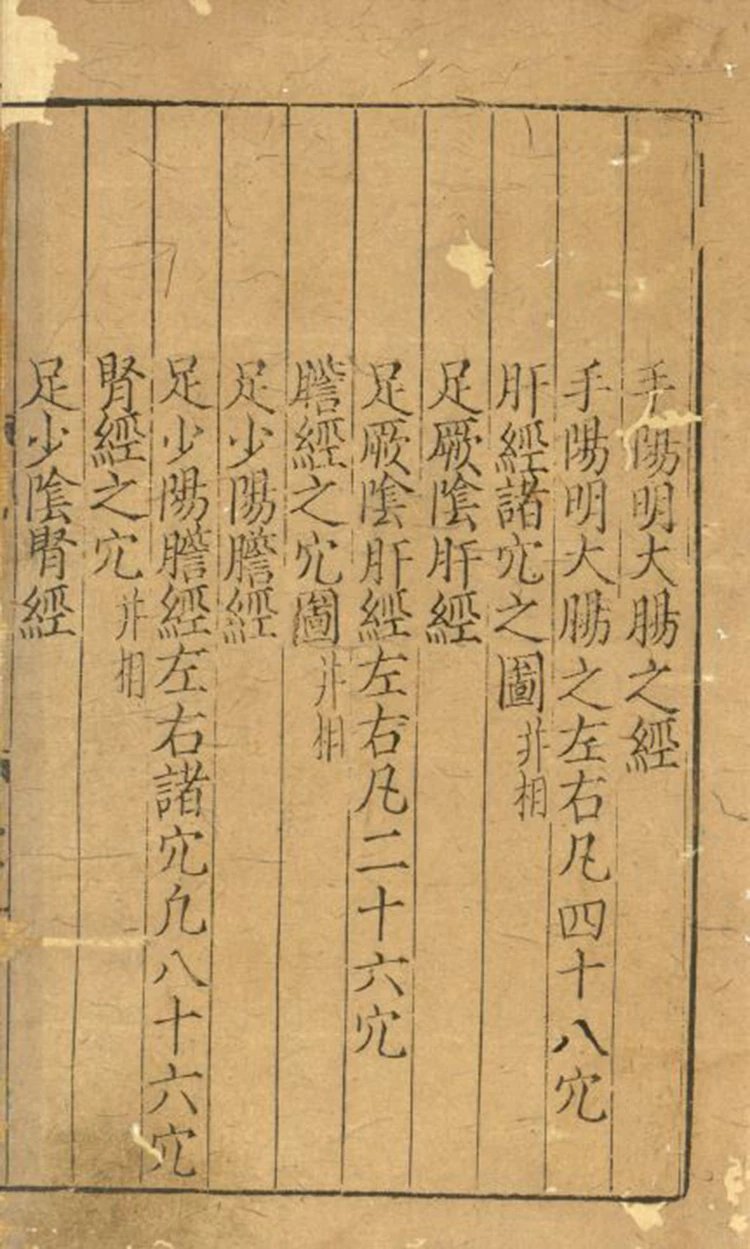 手陽明大腸之經
手陽明大腸之左右凡四十八穴
肝經諸穴之圖 并相
足厥陰肝經
足厥陰肝經左右凡二十六穴
膽經之穴圖 并相
足少陽膽經
足少陽膽經左右諸穴凢八十六穴
腎經之穴 并相
足少陰腎經